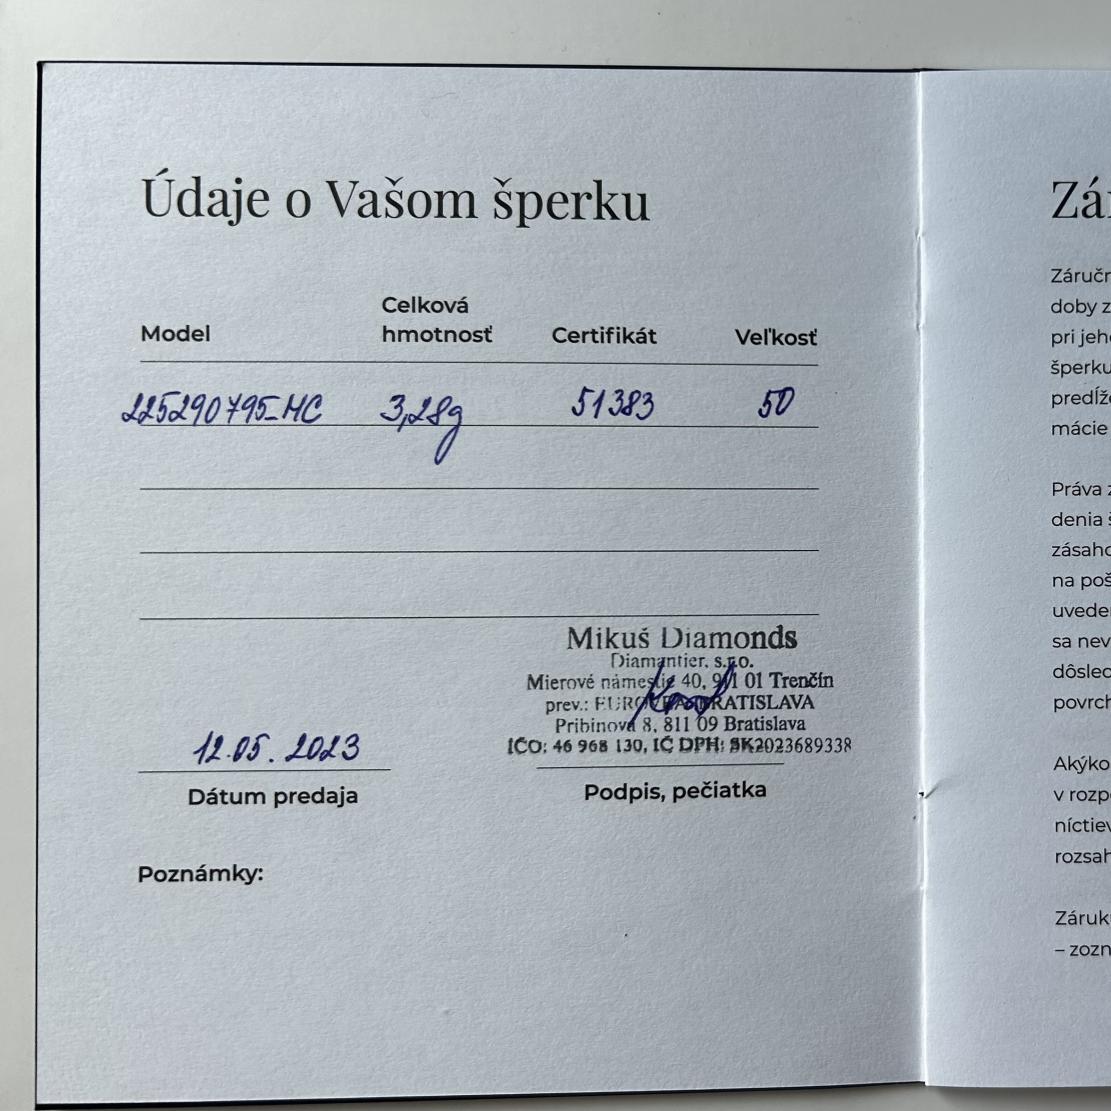 Údaje o Vašom šperku
Model
Celková
hmotnosť
Certifikát
Veľkosť
225290795_HC
3,28g
51383
50
Mikuš Diamonds
Diamantier, s.r.o.
Mierové námestie 40, 911 01 Trenčín
prev.: EUROVEA BRATISLAVA
Pribinova 8, 811 09 Bratislava
IČO: 46 968 130, IČ DPH: SK2023689338
12.05.2023
Dátum predaja
Podpis, pečiatka
Poznámky:
Zá
Záručn
doby z
pri jeh
šperku
predĺž
mácie
Práva z
denia š
zásaho
na poš
uveden
sa nev
dôsled
povrch
Akýko
v rozp
níctiev
rozsah
Záruk
– zozn